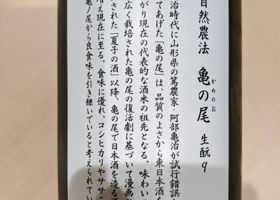 自然農法 亀の尾 生酛9
かめのお
治時代に山形県の篤農家・阿部亀治が試行錯誤
てあげた「亀の尾」は、品質のよさから東日本で
がり現在の代表的な酒米の祖先となる。味わい
広く栽培された亀の尾の復活劇に基づいて漫画
された「夏子の酒」以降、亀の尾で日本酒を造る
増え現在に至る。食味に優れ、コシヒカリやササニ
の尾から良食味を引き継いでいると考えられてい